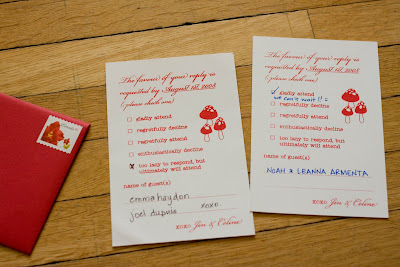 The favour of your reply is
requested by August 1st, 2008
(please check one)
gladly attend
regretfully decline
regretfully attend
enthusiastically decline
x too lazy to respond, but
ultimately will attend
name of guest(s)
emma haydon
joel dupuis xoxo
xoxo Jen & Celine
The favour of your reply is
requested by August 1st, 2008
(please check one)
✓ gladly attend
we can't wait !!
regretfully decline
regretfully attend
enthusiastically decline
too lazy to respond, but
ultimately will attend
name of guest(s)
NOAH & LEANNA ARMENTA
xoxo Jen & Celine